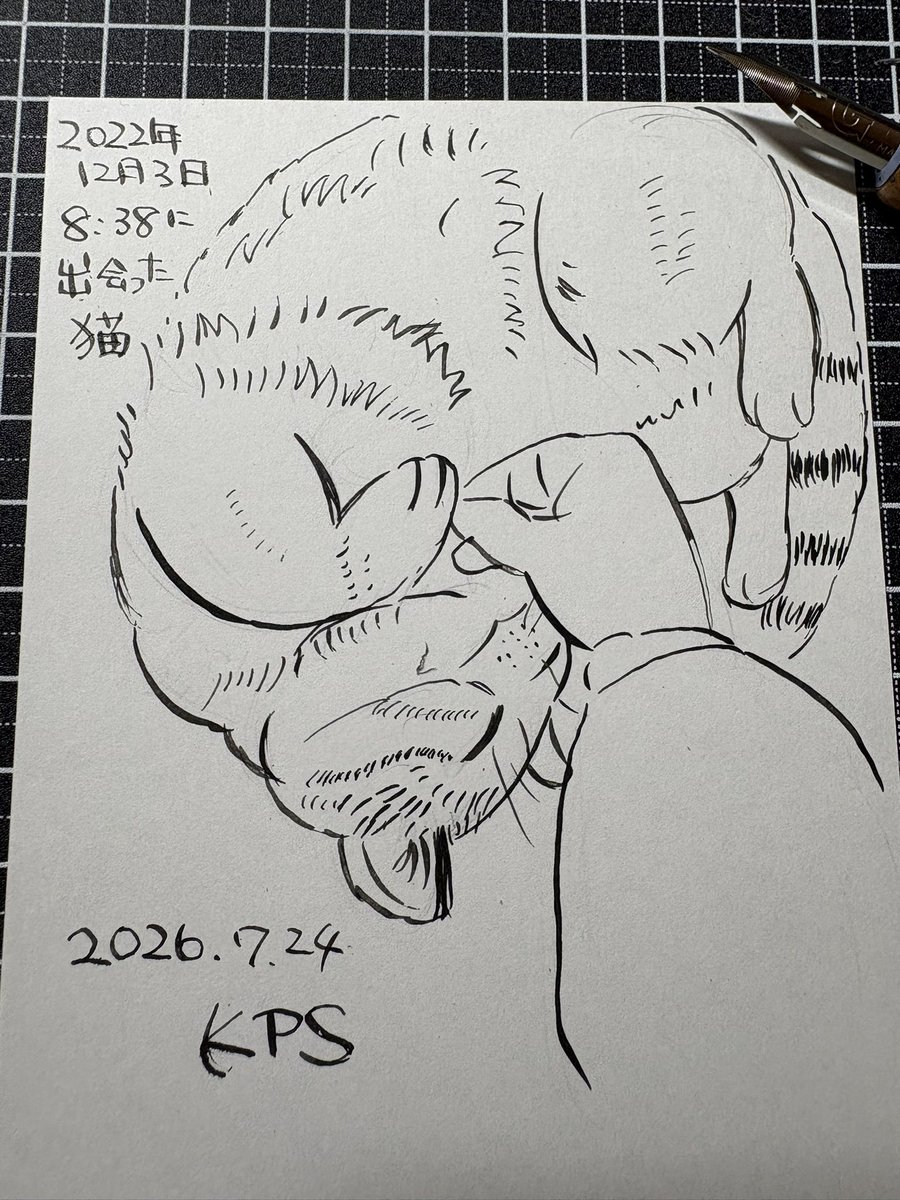 2022年
12月3日
8:38に
出会った
猫
2026.7.24
KPS